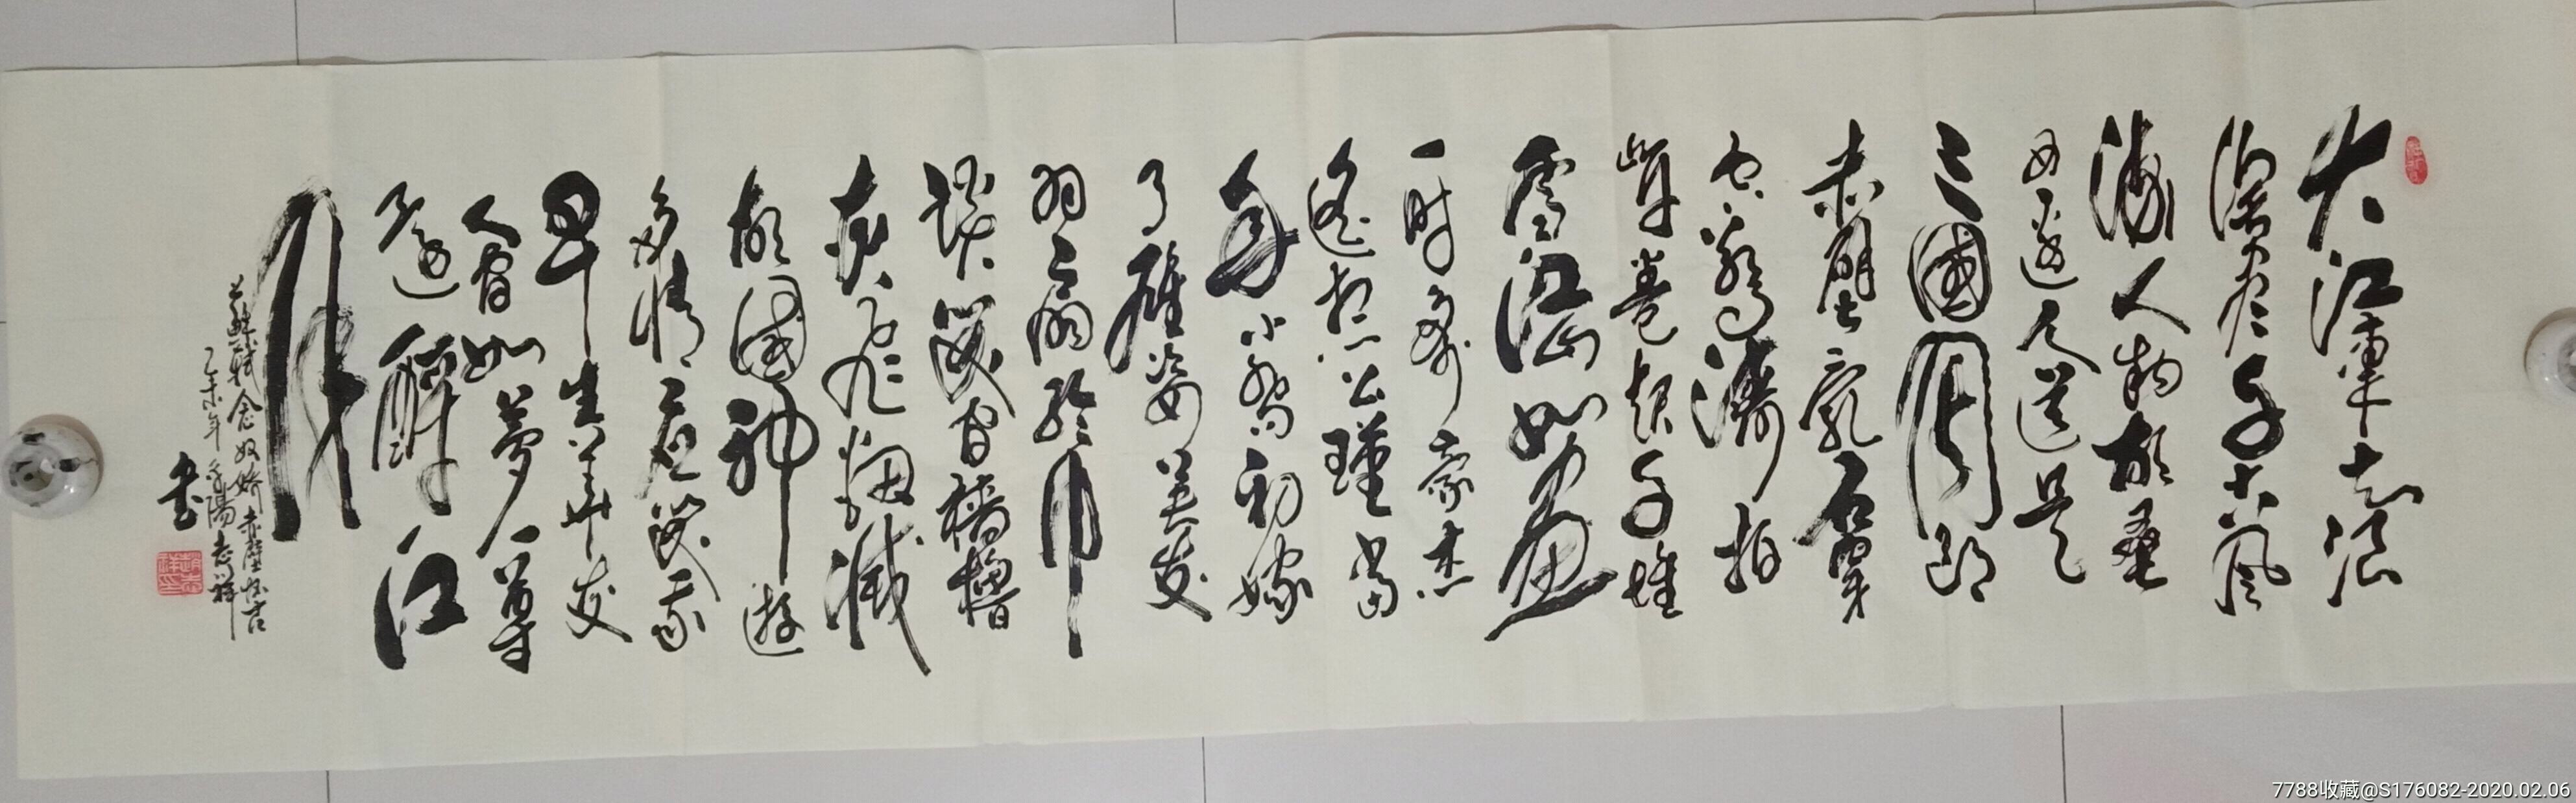 大江東去浪
淘尽千古風
流人物故壘
西邊人道是
三國周郎
赤壁亂石穿
空驚濤拍
岸卷起千堆
雪江山如畫
一時多少豪杰
遙想公瑾當
年小喬初嫁
了雄姿英发
羽扇綸巾
談笑间檣櫓
灰飞烟滅
故國神遊
多情应笑我
早生華发
人间如夢一尊
還酹江
月
蘇軾念奴嬌赤壁怀古
乙未年陽志祥
書
7788收藏@S176082-2020.02.06